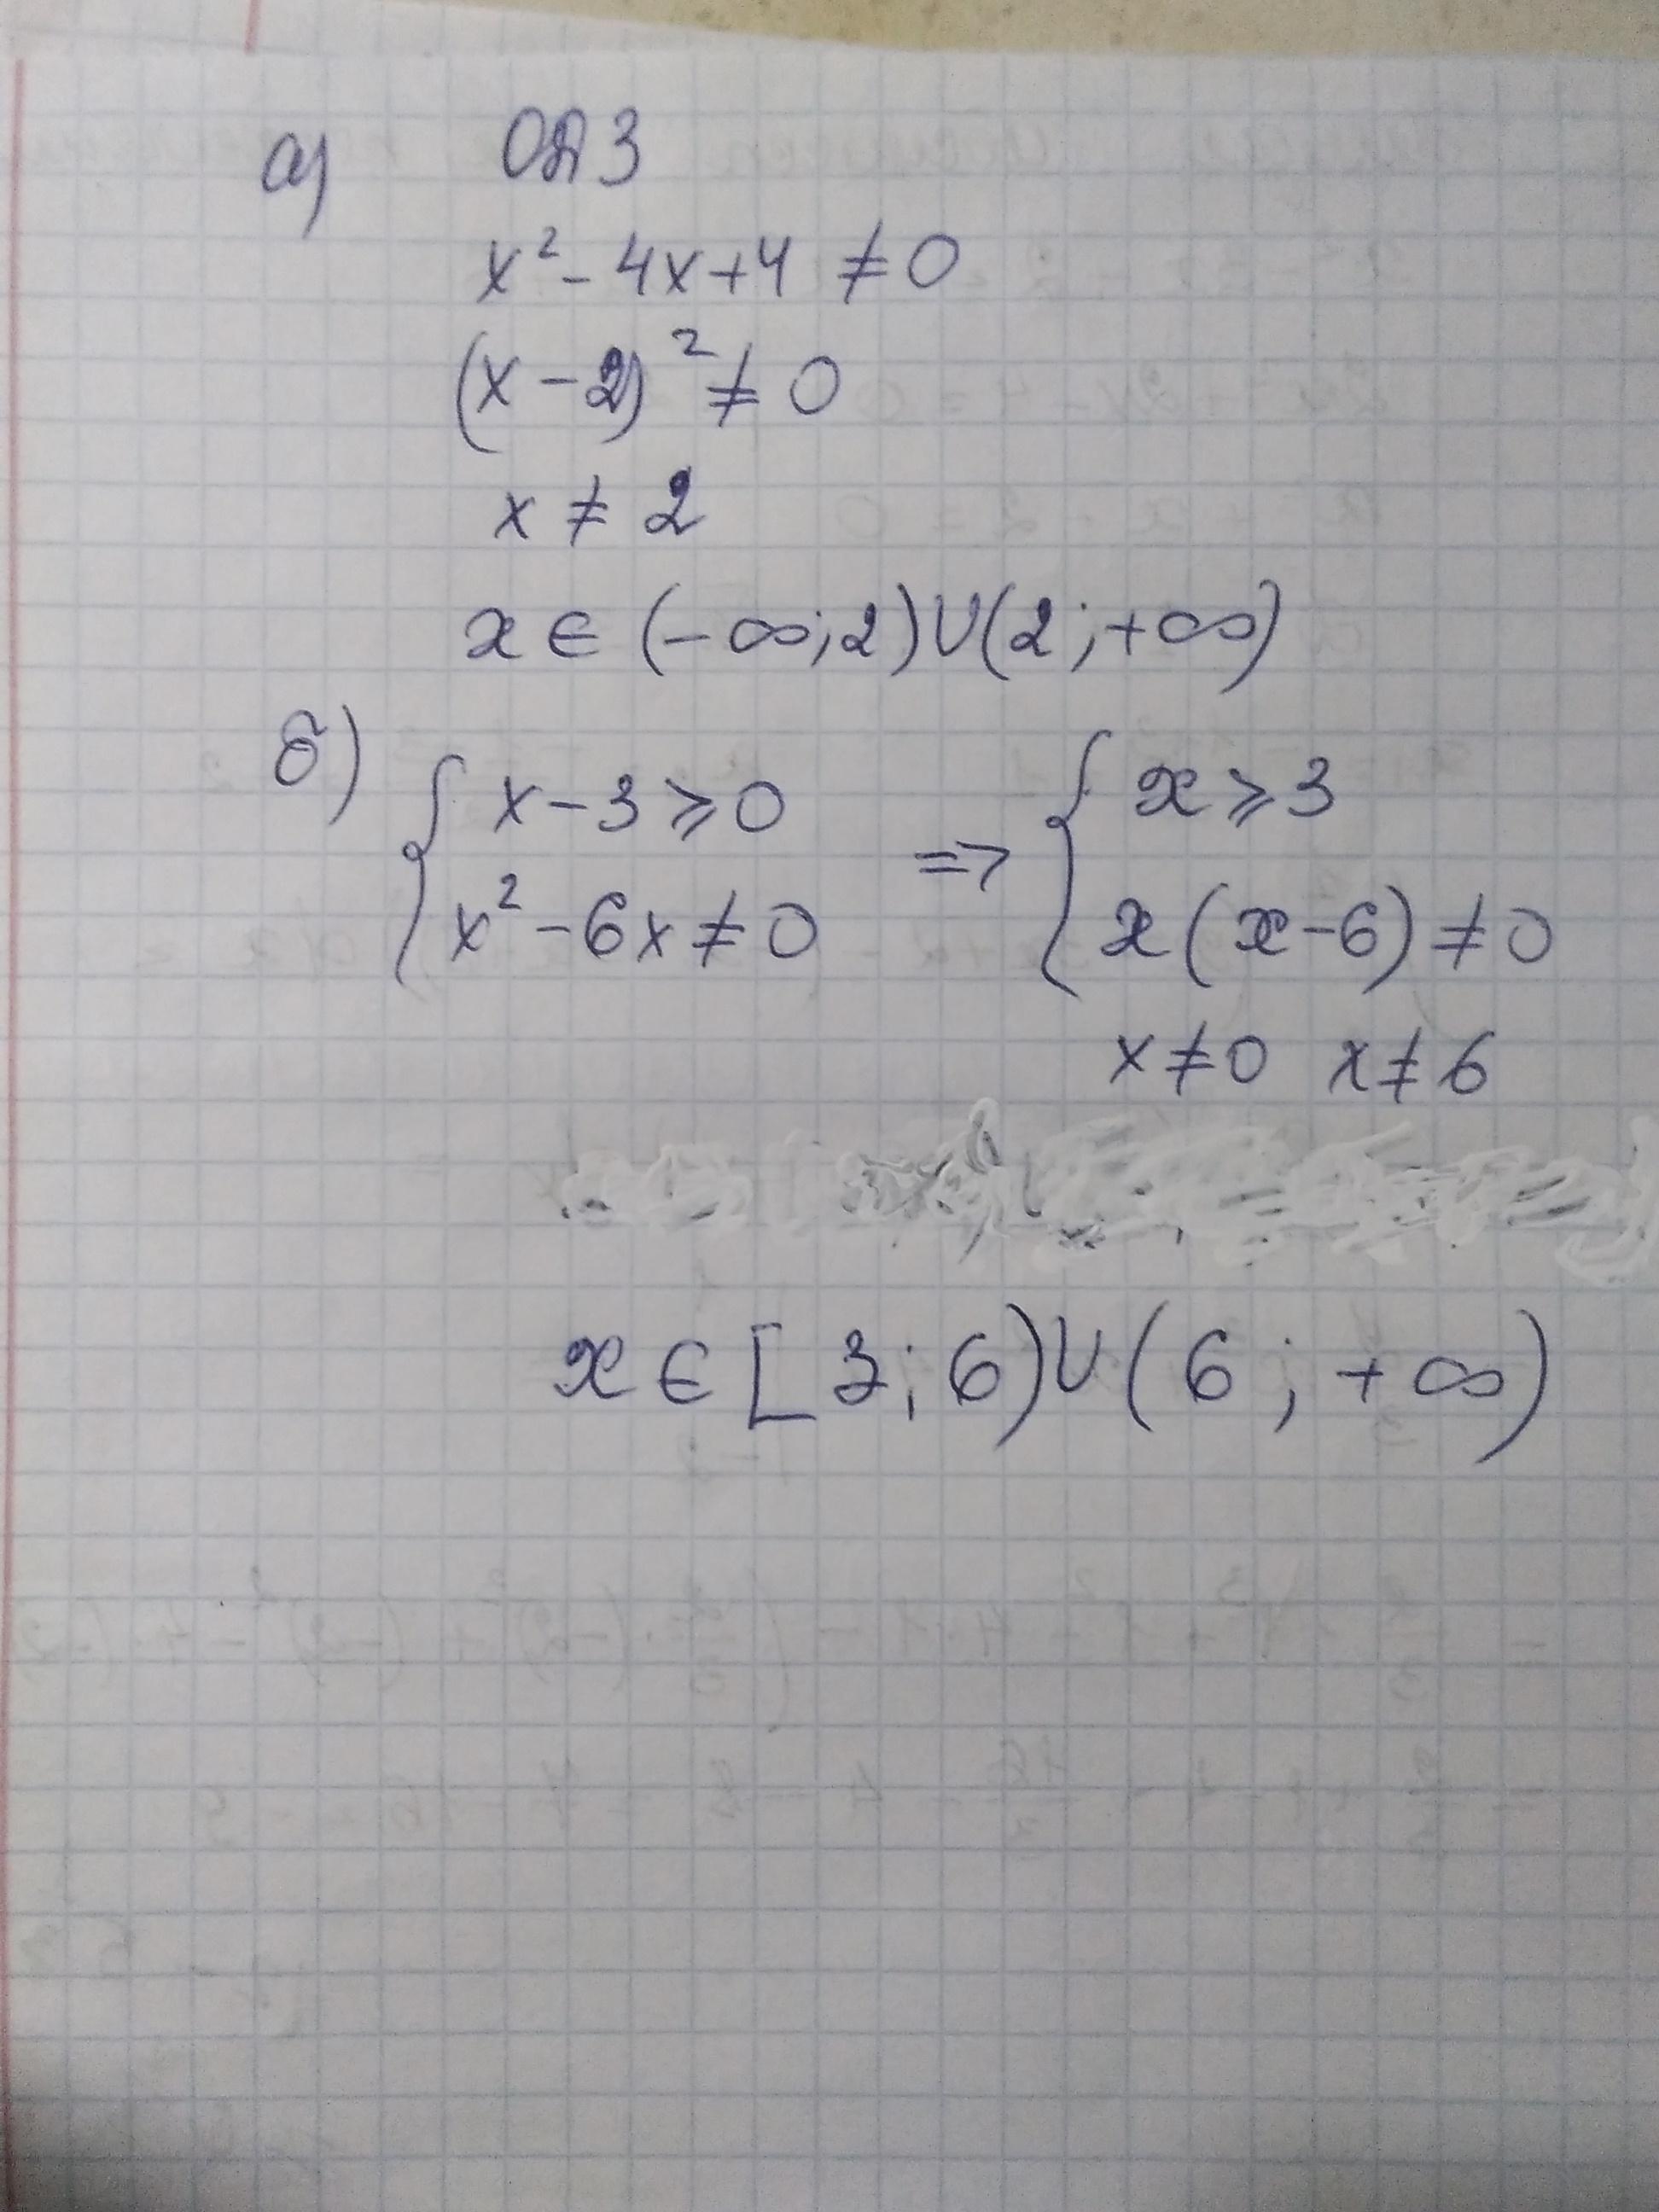 а) ОДЗ
x² - 4x + 4 ≠ 0
(x - 2)² ≠ 0
x ≠ 2
x ∈ (-∞; 2) ∪ (2; +∞)
б) { x - 3 ⩾ 0 => { x ⩾ 3
x² - 6x ≠ 0 x(x - 6) ≠ 0
x ≠ 0 x ≠ 6
x ∈ [3; 6) ∪ (6; +∞)